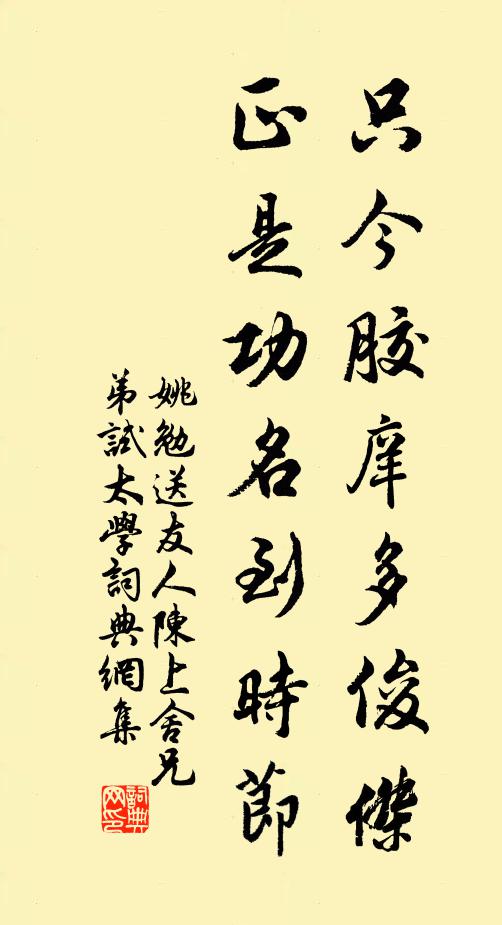 只今膠庠多俊傑
正是功名到時節
姚勉送友人陳上舍兄
弟試太學詞典網集
詞典网印